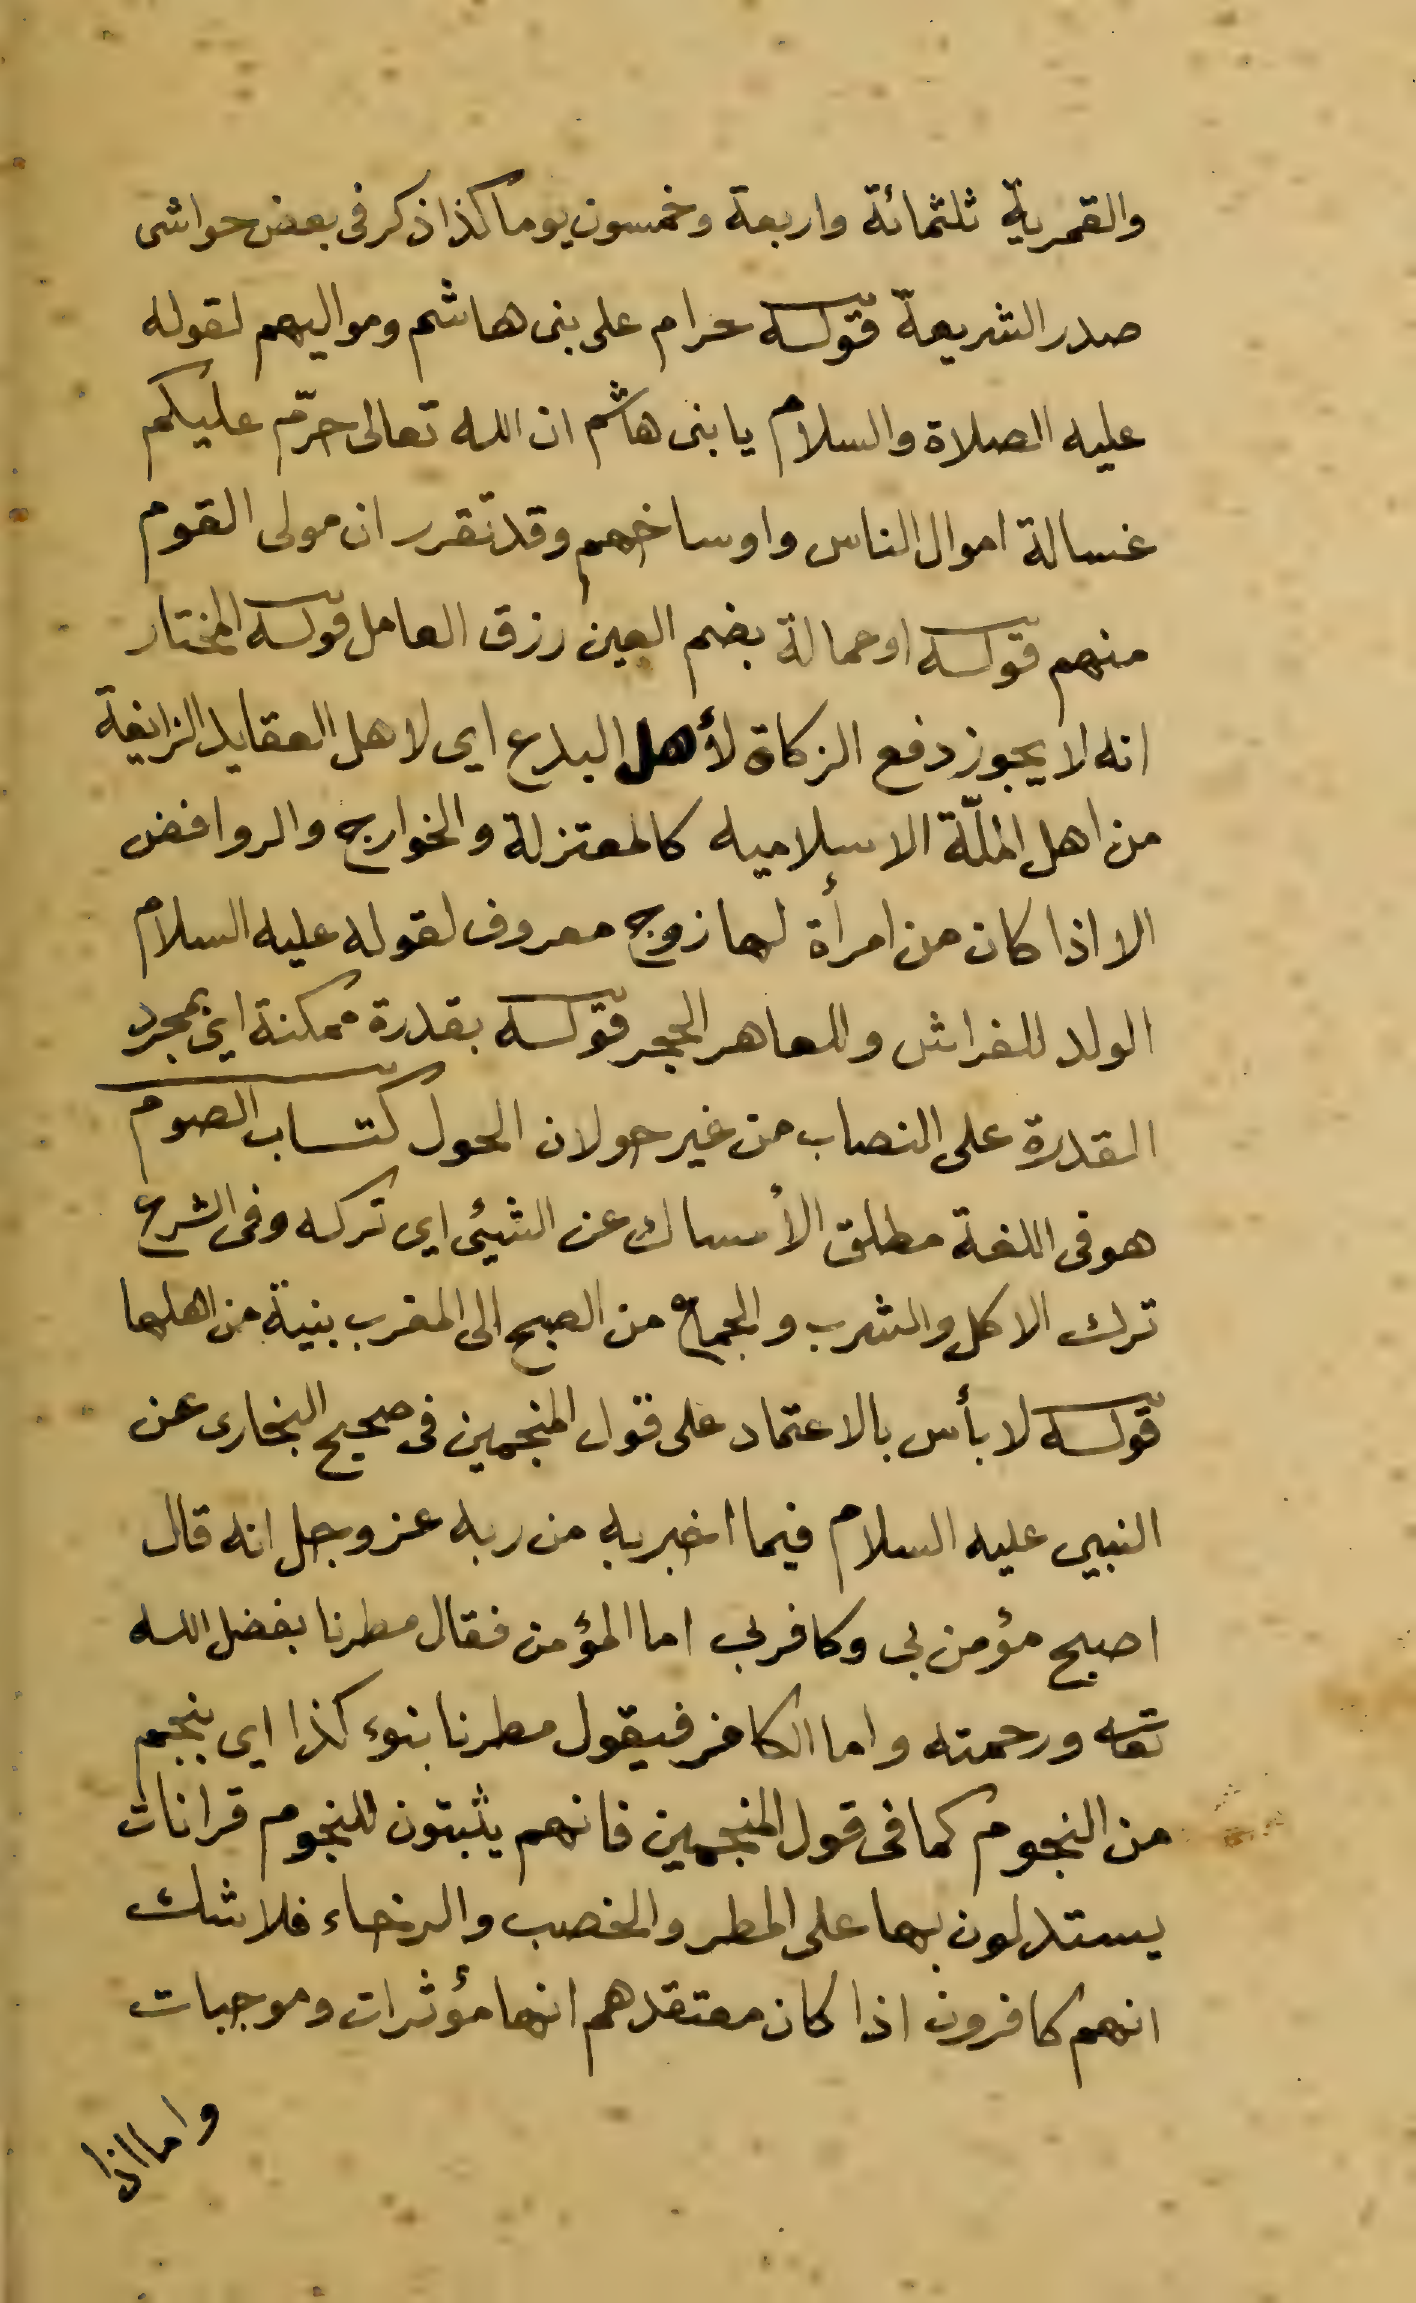 والقمرية ثلثمائة واربعة وخمسون يوما كذا ذكر فى بعض حواشى
صدر الشريعة قوله حرام على بنى هاشم ومواليهم لقوله
عليه الصلاة والسلام يا بنى هاشم ان الله تعالى حرّم عليكم
غسالة اموال الناس واوساخهم وقد تقرر ان مولى القوم
منهم قوله او عمالة بضم العين رزق العامل قوله المختار
انه لا يجوز دفع الزكاة لأهل البدع اى لاهل العقايد الزايغة
من اهل الملّة الاسلاميه كالمعتزلة والخوارج والروافض
الا اذا كان من امرأة لها زوج معروف لقوله عليه السلام
الولد للفراش وللعاهر الحجر قوله بقدرة ممكنة اى بمجرد
القدرة على النصاب من غير حولان الحول كتاب الصوم
هو فى اللغة مطلق الأمساك عن الشيئ اى تركه وفى الشرع
ترك الاكل والشرب والجماع من الصبح الى المغرب بنية من اهلها
قوله لا بأس بالاعتماد على قول المنجمين فى صحيح البخارى عن
النبيى عليه السلام فيما اخبر به من ربه عز وجل انه قال
اصبح مؤمن بى وكافر بى اما المؤمن فقال مطرنا بفضل الله
تعا ورحمته واما الكافر فيقول مطرنا بنوء كذا اى بنجم
من النجوم كما فى قول المنجمين فانهم يثبتون للنجوم قرانات
يستدلون بها على المطر والخصب والرخاء فلا شك
انهم كافرون اذا كان معتقدهم انها مؤثرات وموجبات
واما اذا